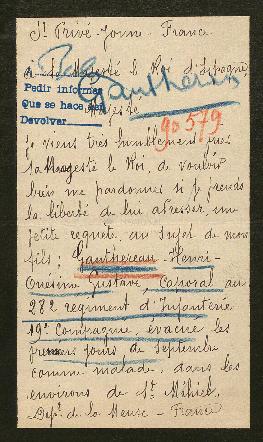 St Privé Yonne. France
A Sa Majesté le Roi d'Espagne
Gauthereau
Pedir informes
Que se hace en
Devolver
Majesté
90579
Je viens très humblement
Majesté le Roi, de vouloir
bien me pardonner si je prends
la liberté de lui adresser une
petite requete au sujet de mon
fils: Gauthereau - Henri-
Onesime Gustave, Caporal au
282 regiment d'Infanterie
19e Compagnie, évacué les
premiers jours de Septembre
comme malade dans les
environs de St Mihiel,
Dépt de la Meuse - France